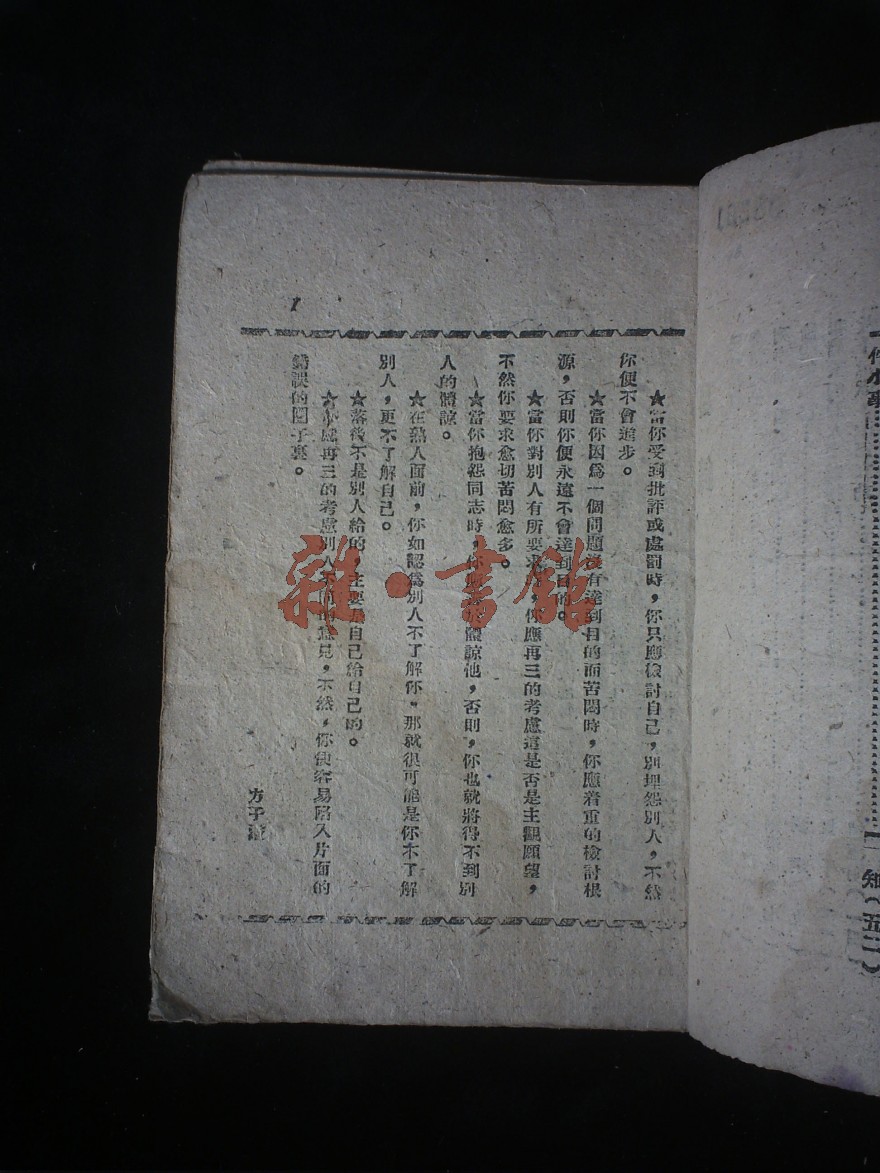 ★當你受到批評或處罰時，你只應檢討自己，別埋怨別人，不然
你便不會進步。
★當你因爲一個問題沒有達到目的而苦悶時，你應着重的檢討根
源，否則你便永遠不會達到目的。
★當你對別人有所要求時，你應再三的考慮這是否是主觀願望，
不然你要求愈切苦悶愈多。
★當你抱怨同志時，你 體諒他，否則，你也就將得不到別
人的體諒。
★在熟人面前，你如認爲別人不了解你，那就很可能是你不了解
別人，更不了解自己。
★落後不是別人給的，主要是自己給自己的。
★ 再三的考慮別人不同的意見，不然，你便容易陷入片面的
錯誤的圈子裏。
方子
1
知（五二）
雜·書館